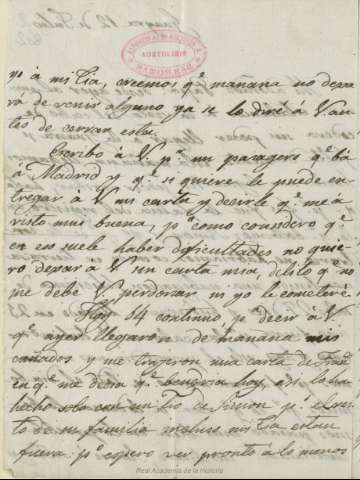 yo á mi tia, creemos q.e mañana no dejara
ra de venir alguno ya se lo diré á V. an-
tes de cerrar esta.
Escribo á V. p.r un pasagero q.e bá
á Madrid y q.e si quiere le puede en-
tregar á V. mi carta y decirle q.e me á
visto mui buena, p.o como considero q.e
en eso suele haber dificultades no quie-
ro dejar á V. sin carta mia, delito q.e no
me debe V. perdonar ni yo le cometeré.
Hoy 14 continuo p.a decir á V.
q.e ayer llegaron de mañana mis
cuñados y me trajeron una carta de
en q.e me decia q.e bendria hoy, asi lo ha
hecho solo con un Tio de p.s el
to de mi familia incluso mi tia estan
fuera: p.o espero ver pronto á lo menos
Real Academia de la Historia